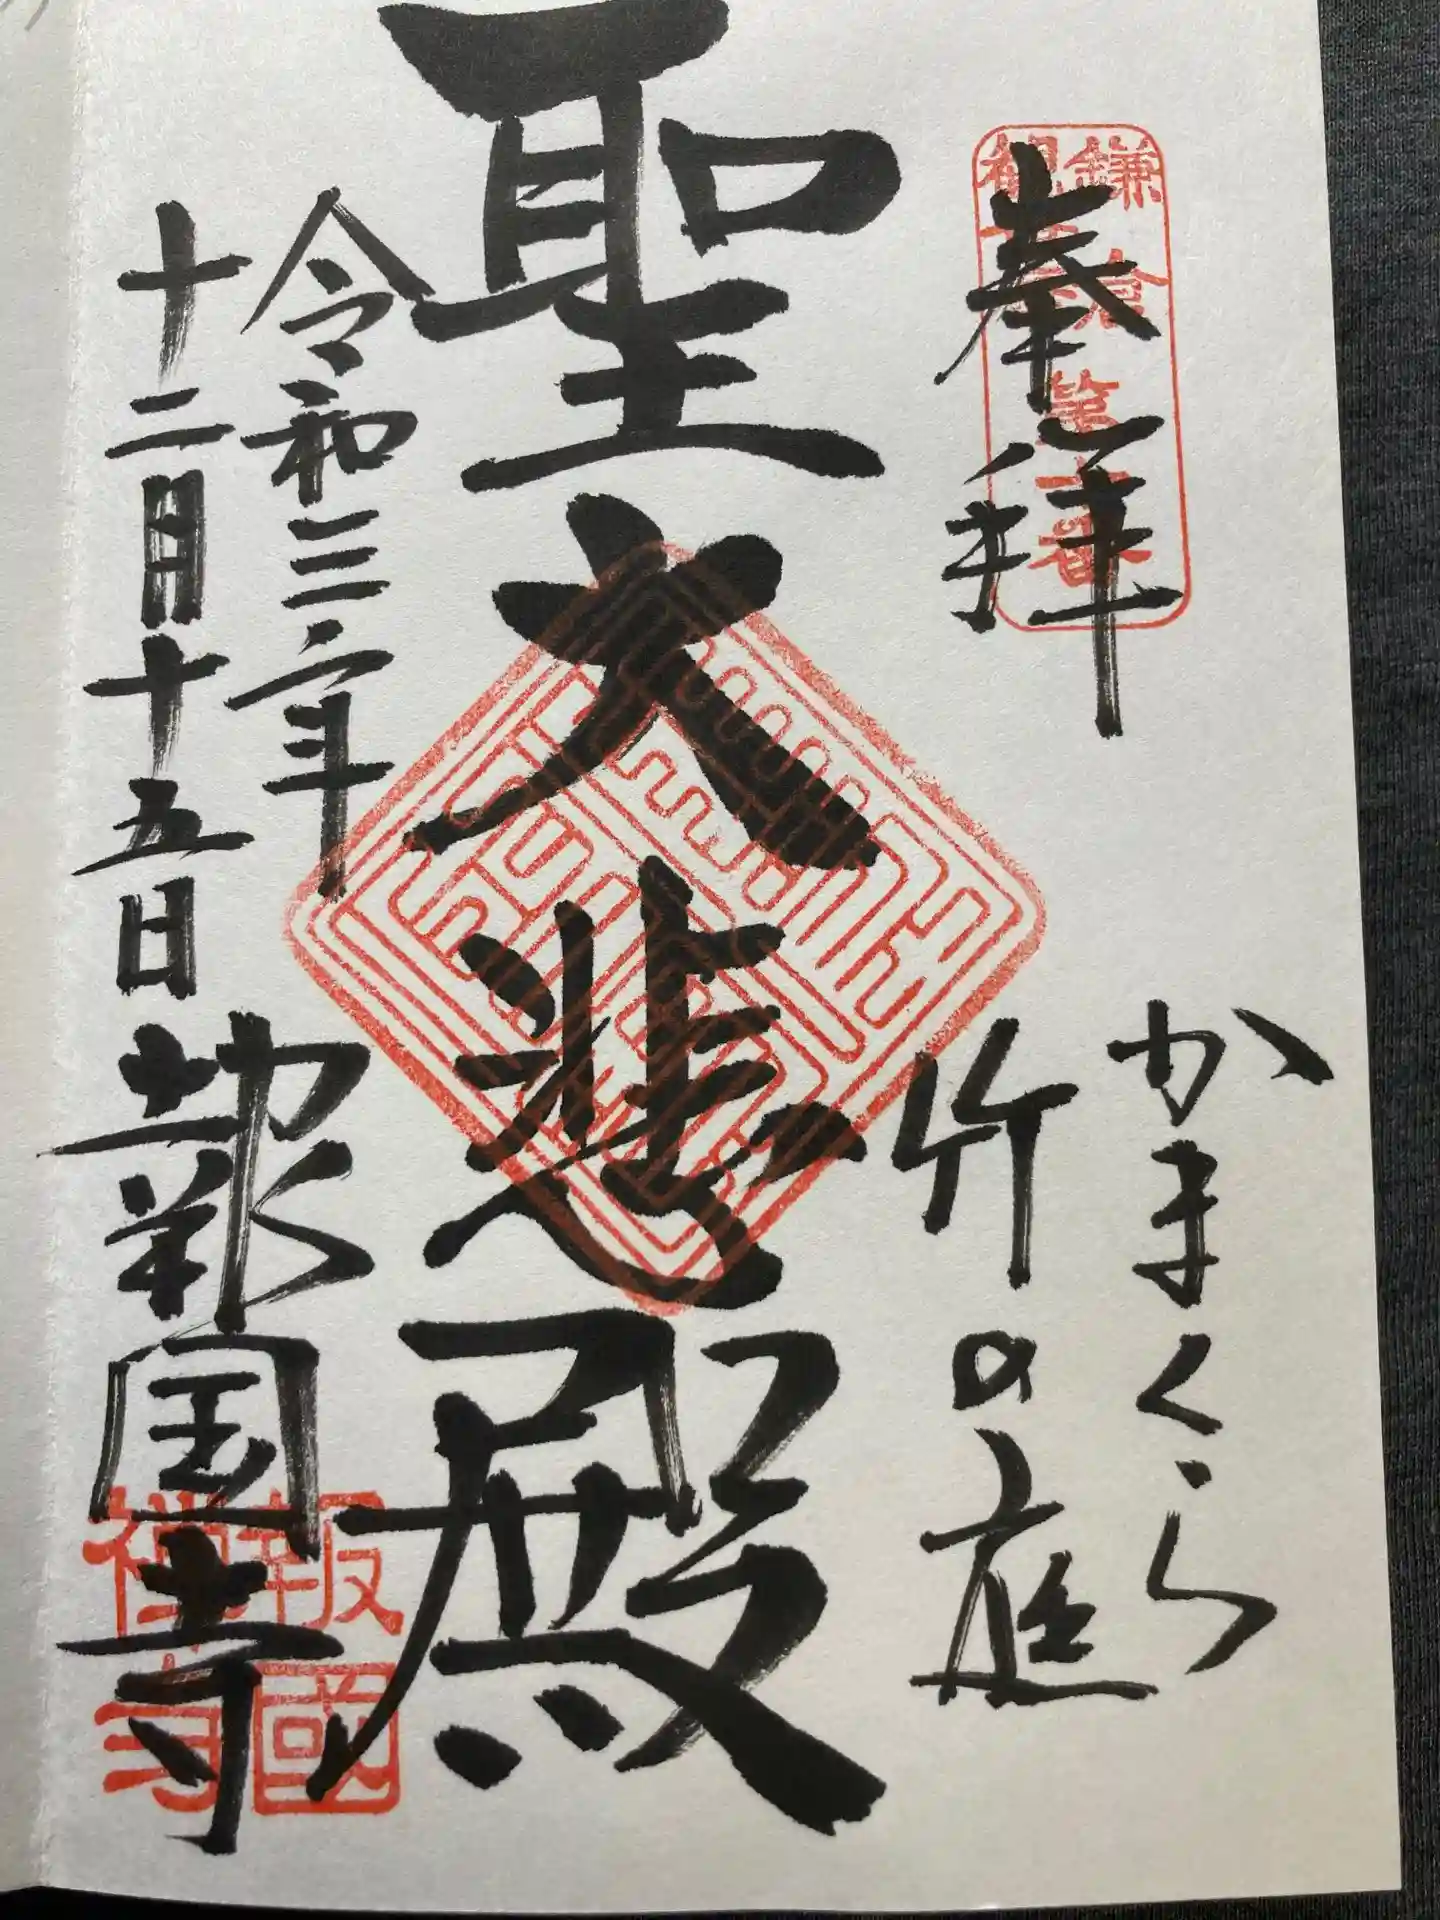 奉拝
鎌倉第十番
かまくら
竹の庭
聖大悲殿
令和三年
十二月十五日
報国寺
報國
禅寺